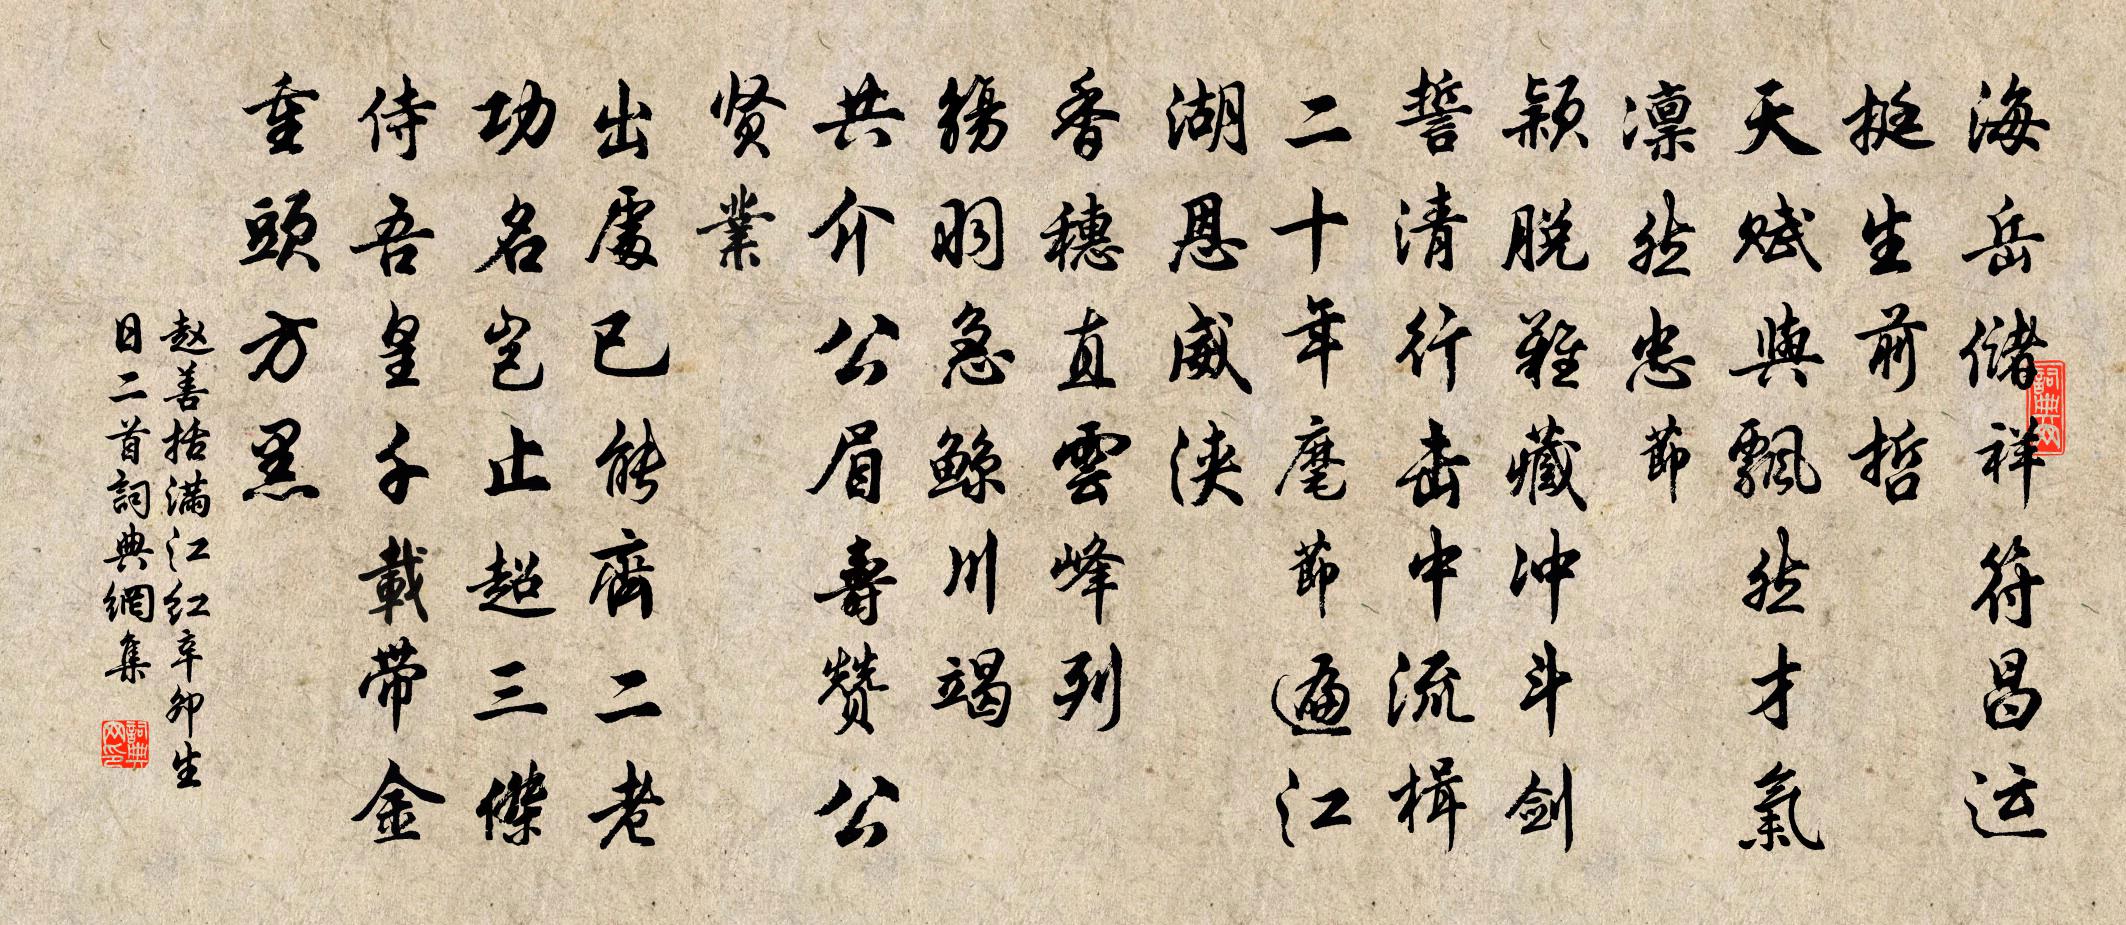 海岳儲祥符昌运
挺生前哲
天赋與飄然才氣
凛然忠節
颖脱難藏冲斗剑
誓清行击中流楫
二十年麾節遍江
湖恩威浃
香穗直雲峰列
觞羽急鲸川竭
共介公眉壽赞公
贤業
出處已能齊二老
功名岂止超三傑
侍吾皇千載带金
重頭方黑
赵善括满江红辛卯生
日二首詞典網集
詞典网
詞典网印